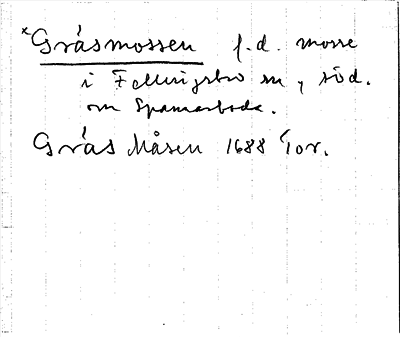 *Gråsmossen f.d. mosse
i Fellingsbro sn, söd.
om Spannarboda.
Grås Måsen 1688 Tor.